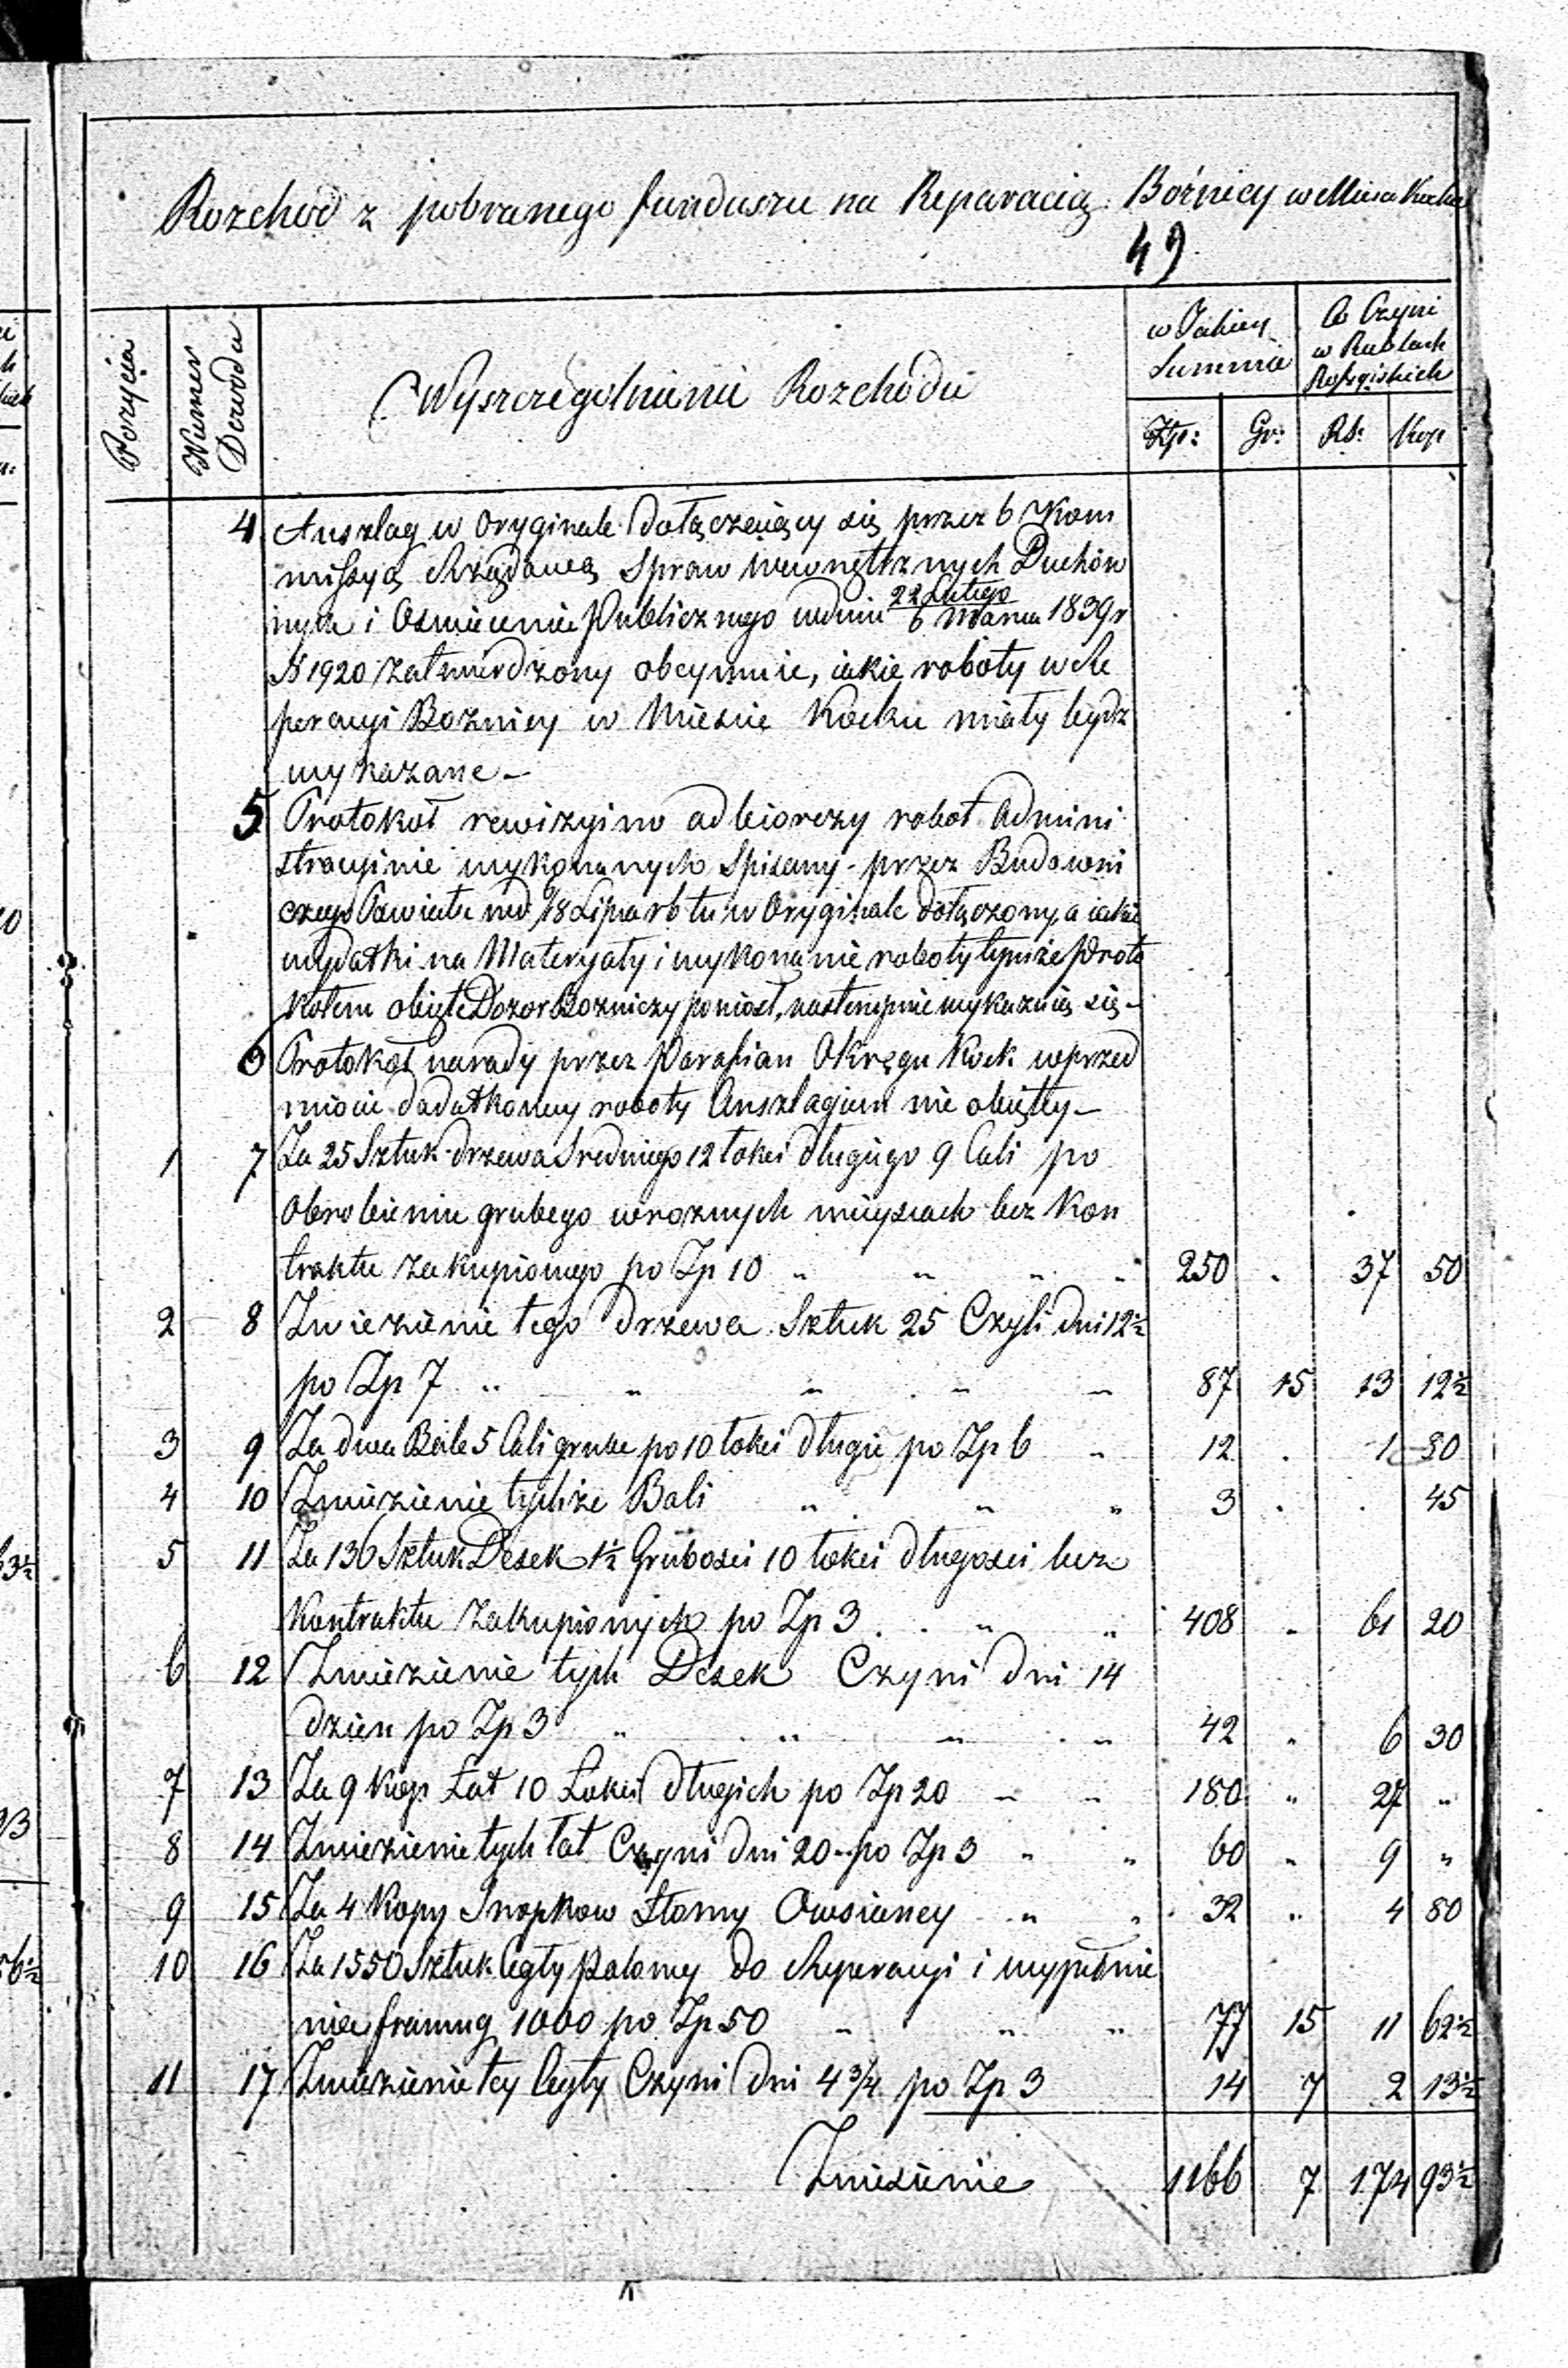 Rozchod z pobranego funduszu na Reparacią Bożnicy w Miescie Kocku
49
Pozycia
Numer Dowodu
Wyszczegolnienie Rozchodu
w Jakiey Summie
Co Czyni w Rublach Rossyiskich
Złp: Gr: Rs: Kop
4 Anszlag w Oryginale dołączaiący się przez b Kom
missyą Rządową Spraw Wewnętrznych Duchow
nych i Oswiecenia Publicznego w dniu 22 Lutego / 6 Marca 1839 r
N 1920 zatwierdzony obeymuie, iakie roboty w Re
peracyi Boznicy w Miescie Kocku miały bydz
wykazane –
5 Protokoł rewizyino odbiorczy robot Admini
stracyinie wykonanych Spisany przez Budowni
czego Powiatu w d /18 Lipca rb tu w Oryginale dołączony, a iakie
wydatki na Materyały i wykonanie roboty tymże Proto
kołem obięte Dozor Bozniczy poniosł, nastempnie wykazuią się –
6 Protokoł narady przez Parafian Okręgu Kock wprzed
miocie dodatkowey roboty Anszlagiem nie obiętey –
1 7 Za 25 Sztuk drzewa Sredniego 12 łokci długiego 9 Cali po
Obrobieniu grubego w roznych mieyscach bez Kon
traktu zakupionego po Zp 10 " " " " 250 . 37 50
2 8 Zwiezienie tego drzewa Sztuk 25 Czyli dni 12½
po Zp 7 " " " " " 87 15 13 12½
3 9 Za dwa Bale 5 Cali grube po 10 łokci długie po Zp 6 " 12 . 1 80
4 10 Zwiezienie tychże Bali " " " 3 . . 45
5 11 Za 136 Sztuk Desek 1½ Grubosci 10 łokci długosci bez
Kontraktu zakupionych po Zp 3 . . " " 408 " 61 20
6 12 Zwiezienie tych Desek Czyni dni 14
dzien po Zp 3 " " " " 42 " 6 30
7 13 Za 9 Kop Łat 10 Łokci długich po Zp 20 " " 180 " 27 "
8 14 Zwiezienie tych łat Czyni dni 20 po Zp 3 " " 60 " 9 "
9 15 Za 4 Kopy Snopkow Słomy Owsianey " " 32 " 4 80
10 16 Za 1550 Sztuk Cegły paloney do Reperacyi i wypełnie
nia framug 1000 po Zp 50 " " " 77 15 11 62½
11 17 Zwiezienie tey Cegły Czyni dni 4¾ po Zp 3 14 7 2 13½
Zniesienie 1166 7 174 93½